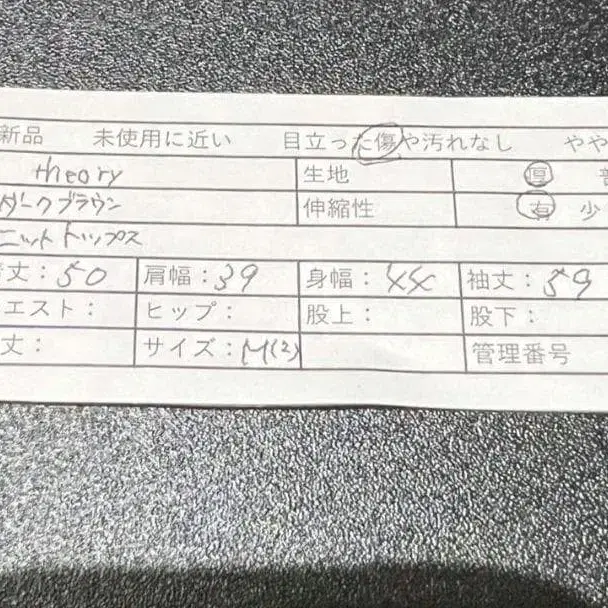 新品 未使用に近い 目立った傷や汚れなし やや
theory 生地 厚
ダークブラウン 伸縮性 有 少
ニットトップス
丈：50 肩幅：39 身幅：44 袖丈：59
エスト： ヒップ： 股上： 股下：
丈： サイズ：M(2) 管理番号